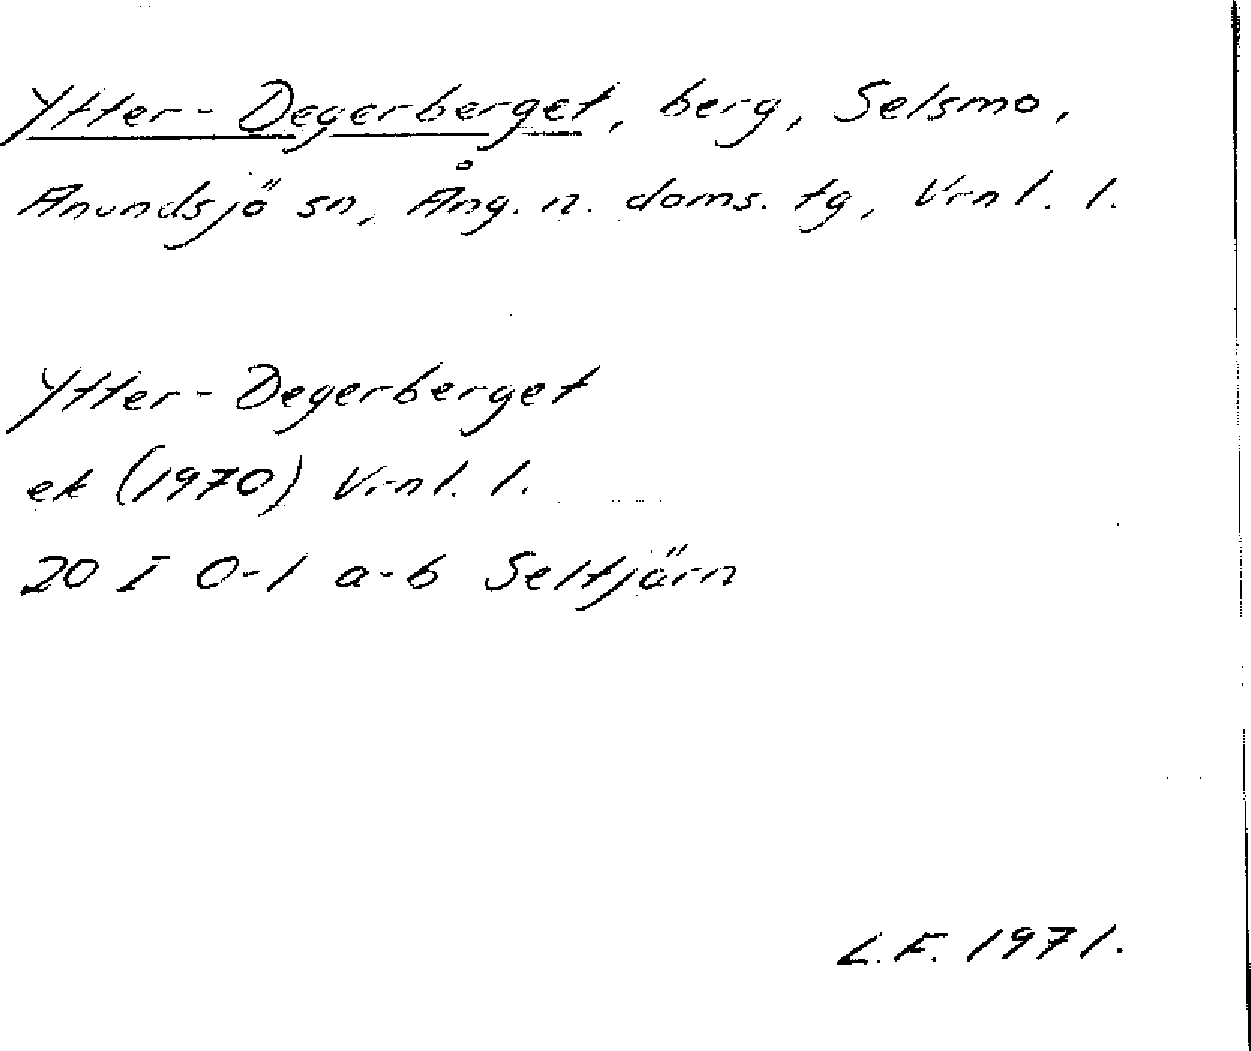 Ytter-Degerberget, berg, Selsmo,
Anundsjö sn, Ång. n. doms. tg, Vrnl. l.
Ytter-Degerberget
ek (1970) Vrnl. l.
20 I 0-1 a-b Seltjärn
L.F. 1971.